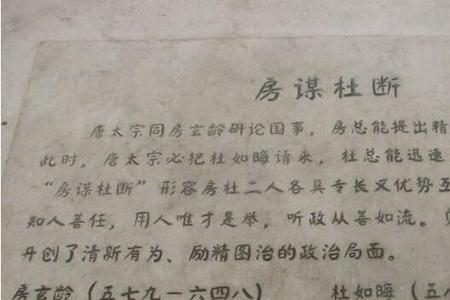 房谋杜断
唐太宗同房玄龄研论国事，房总能提出精
此时，唐太宗必把杜如晦请来，杜总能迅速
“房谋杜断”形容房杜二人各具专长又优势互
知人善任，用人唯才是举，听政从善如流。
开创了清新有为、励精图治的政治局面。
房玄龄（五七九一六四八） 杜如晦（五八